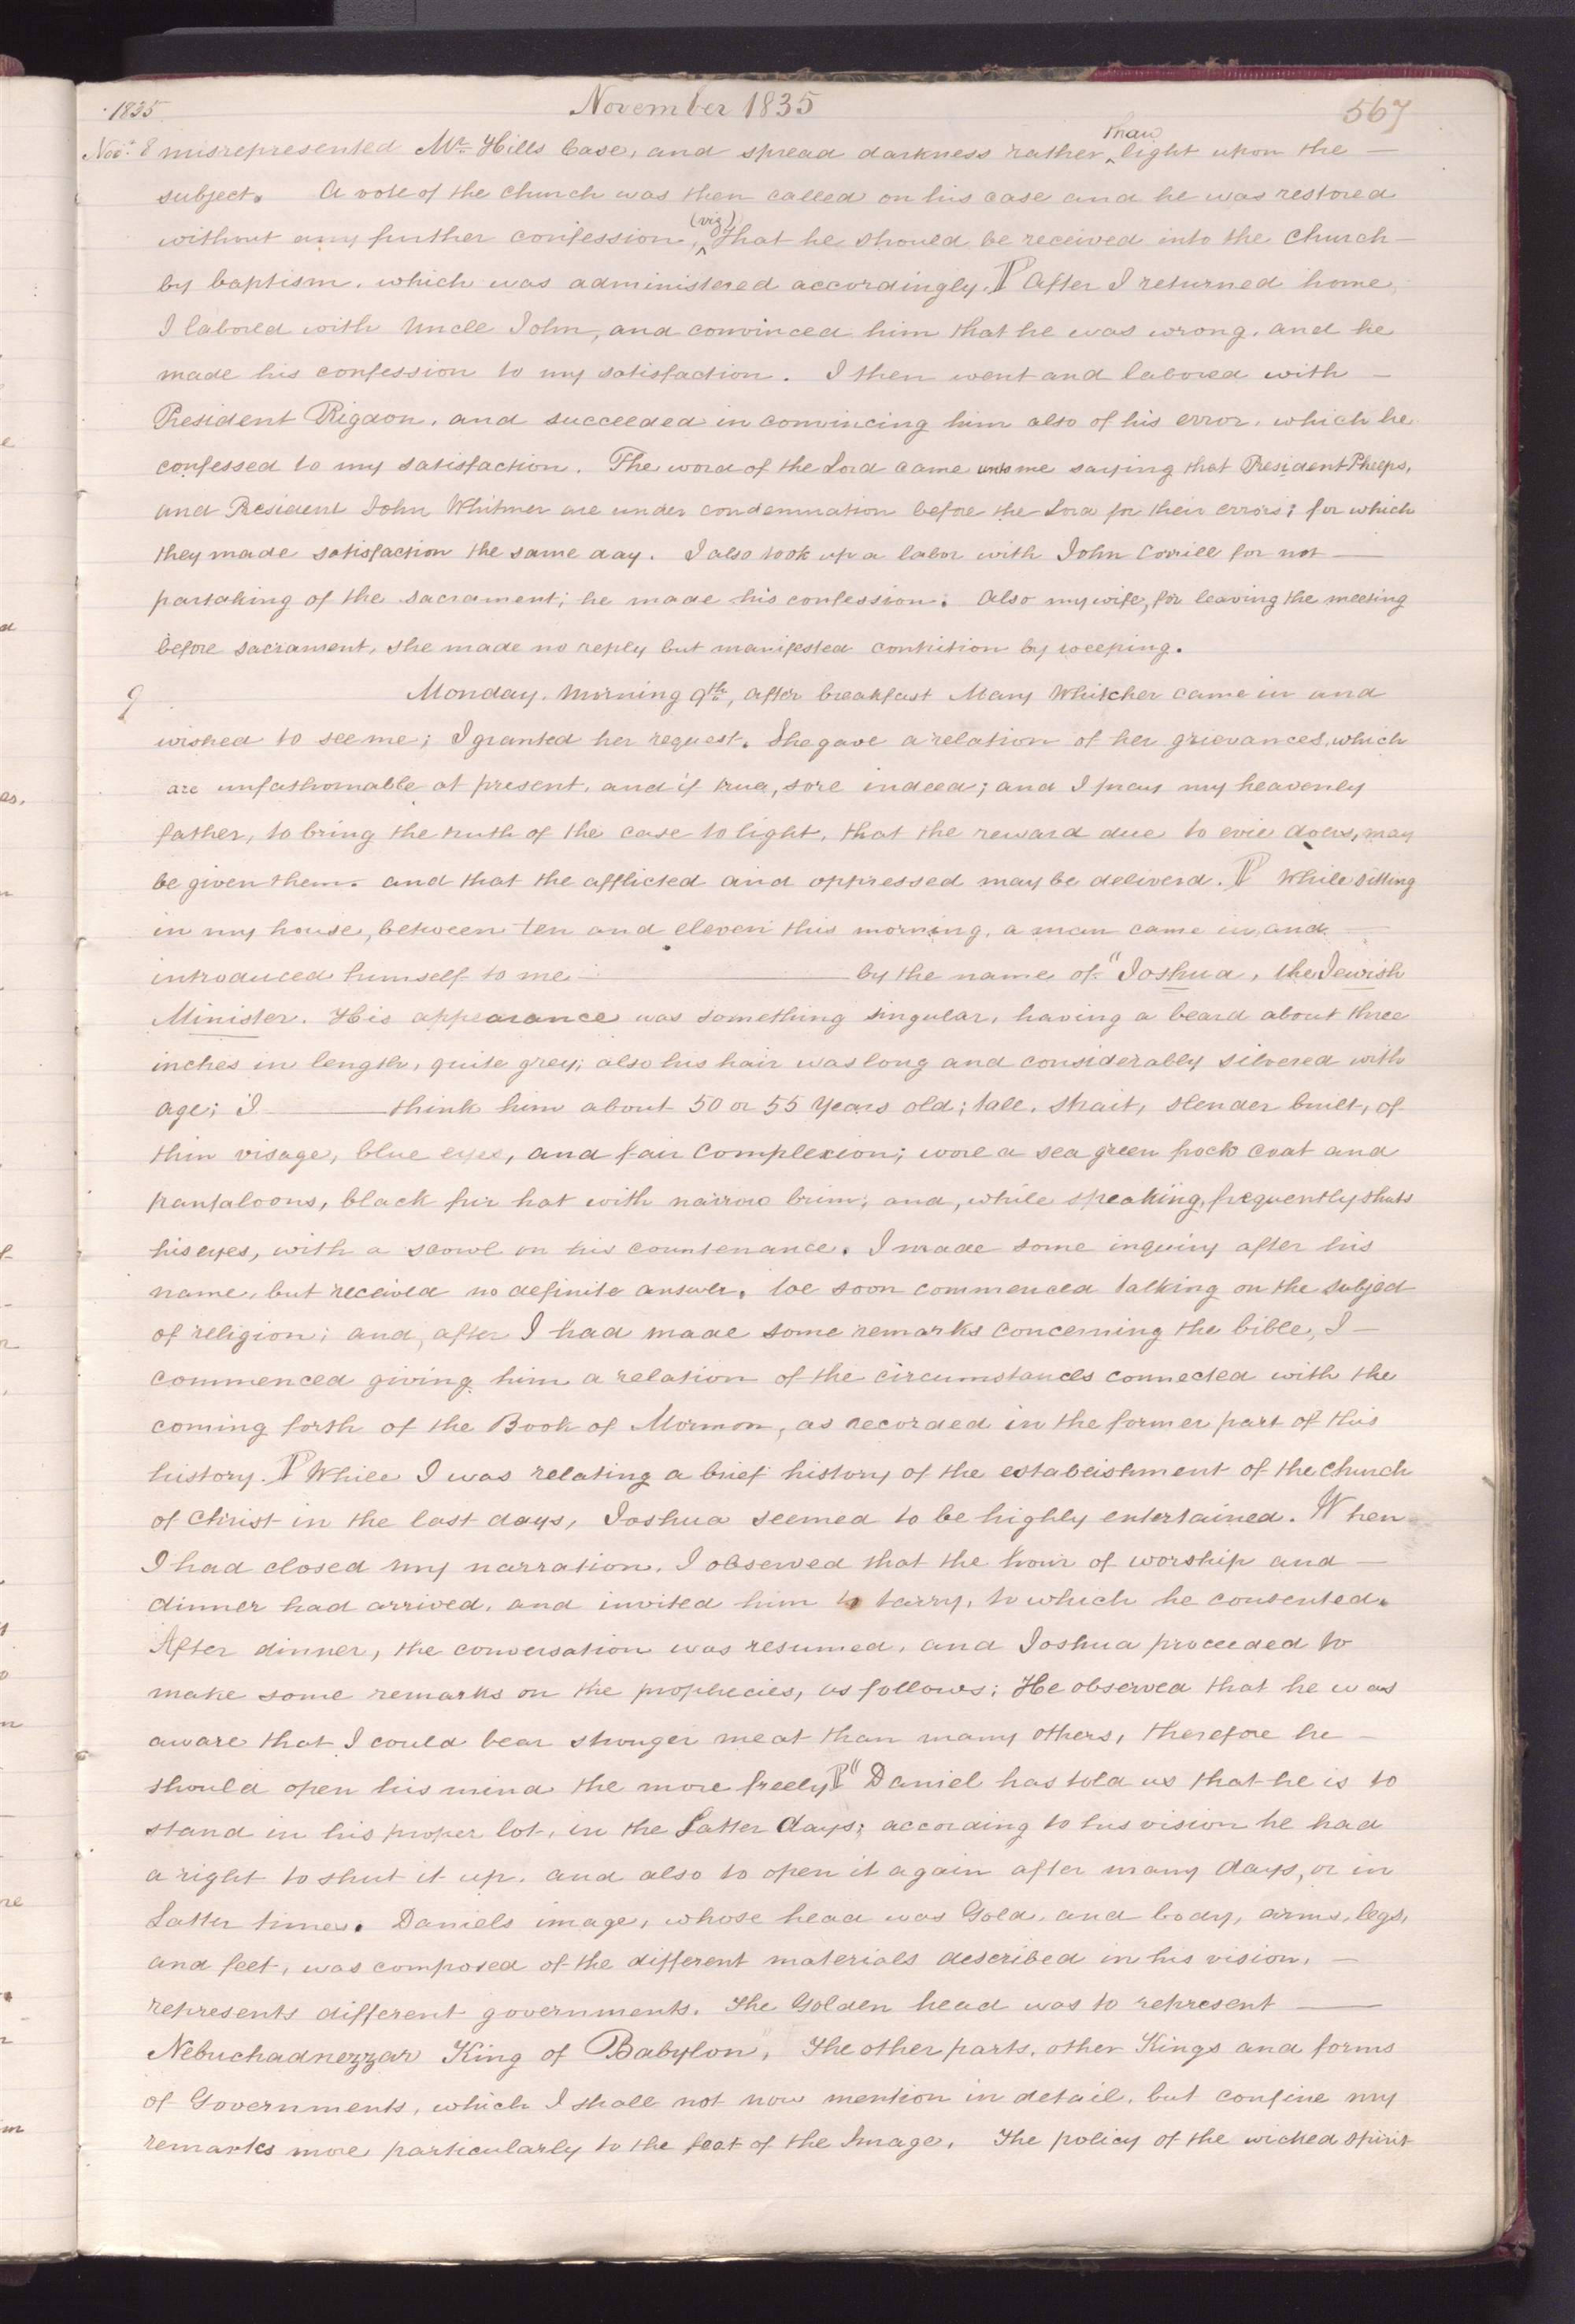 1835 November 1835 567
than
Nov. 8 misrepresented Mr. Hills Case, and spread darkness rather ^ light upon the —
subject. A vote of the church was then called on his case and he was restored
(viz)
without any further confession, ^ that he should be received into the church —
by baptism. which was administered accordingly. ¶ After I returned home,
I labored with Uncle John, and convinced him that he was wrong. and he
made his confession to my satisfaction. I then went and labored with —
President Rigdon, and succeeded in convincing him also of his error. which he
confessed to my satisfaction. The word of the Lord came unto me saying that President Phelps,
and President John Whitmer are under condemnation before the Lord for their errors; for which
they made satisfaction the same day. I also took up a labor with John Corrill for not —
partaking of the sacrament; he made his confession. Also my wife, for leaving the meeting
before sacrament, she made no reply but manifested contrition by weeping.
9 Monday. morning 9th, after breakfast Mary Whitcher came in and
wished to see me; I granted her request. She gave a relation of her grievances, which
are unfathomable at present, and if true, sore indeed; and I pray my heavenly
father, to bring the truth of the case to light, that the reward due to evil doers, may
be given them. and that the afflicted and oppressed may be deliverd. ¶ While sitting
in my house, between ten and eleven this morning, a man came in, and —
introduced himself to me — by the name of "Joshua, the Jewish
Minister. His appearance was something singular, having a beard about three
inches in length, quite grey; also his hair was long and considerably silvered with
age; I — think him about 50 or 55 years old; tall, strait, slender built, of
thin visage, blue eyes, and fair complexion; wore a sea green frock coat and
pantaloons, black fur hat with narrow brim; and, while speaking, frequently shuts
his eyes, with a scowl on his countenance. I made some inquiry after his
name, but received no definite answer. we soon commenced talking on the subject
of religion; and, after I had made some remarks concerning the bible, I —
commenced giving him a relation of the circumstances connected with the
coming forth of the Book of Mormon, as recorded in the former part of this
history. ¶ While I was relating a brief history of the establishment of the church
of Christ in the last days, Joshua seemed to be highly entertained. When
I had closed my narration, I observed that the hour of worship and —
dinner had arrived, and invited him to tarry, to which he consented.
After dinner, the conversation was resumed, and Joshua proceeded to
make some remarks on the prophecies, as follows: He observed that he was
aware that I could bear stronger meat than many others, therefore he —
should open his mind the more freely ¶ "Daniel has told us that he is to
stand in his proper lot, in the Latter days; according to his vision he had
a right to shut it up, and also to open it again after many days, or in
Latter times. Daniels image, whose head was Gold, and body, arms, legs,
and feet, was composed of the different materials described in his vision, —
represents different governments. The Golden head was to represent —
Nebuchadnezzar King of Babylon", The other parts, other Kings and forms
of Governments, which I shall not now mention in detail, but confine my
remarks more, particularly to the feet of the Image. The policy of the wicked spirit